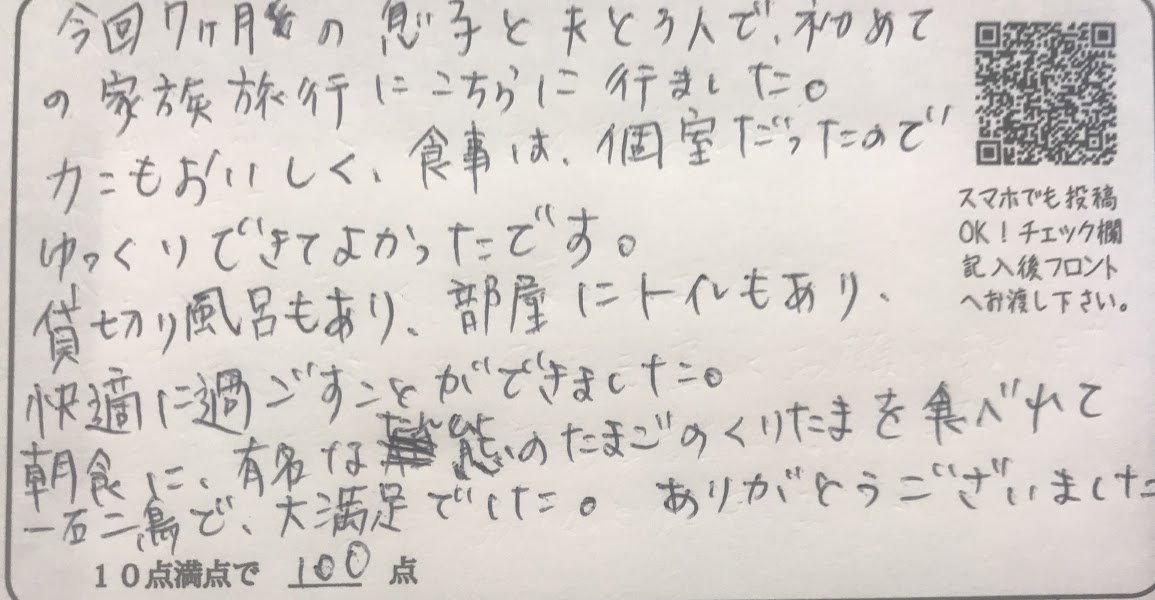 今回7ヶ月の息子と夫と3人で、初めて
の家族旅行にこちらに行ました。
カニもおいしく、食事は、個室だったので
ゆっくりできてよかったです。
貸切り風呂もあり、部屋にトイレもあり、
快適に過ごすことができました。
朝食に、有名なのたまごのくりたまを食べれて
一石二鳥で、大満足でした。 ありがとうございました
10点満点で 100 点
スマホでも投稿
OK!チェック欄
記入後フロント
へお渡し下さい。